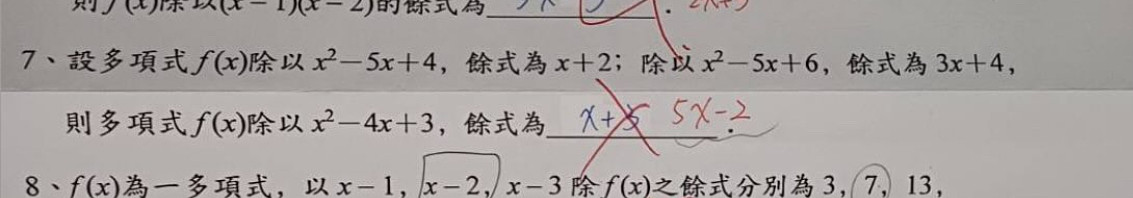 則 f(x)除以(x－1)(x－2)的餘式為
7、設多項式 f(x)除以 x²－5x＋4，餘式為 x＋2；除以 x²－5x＋6，餘式為 3x＋4，
則多項式 f(x)除以 x²－4x＋3，餘式為 x+5 5x-2．
8、f(x)為一多項式，以 x－1，x－2，x－3 除 f(x)之餘式分別為 3，7，13，